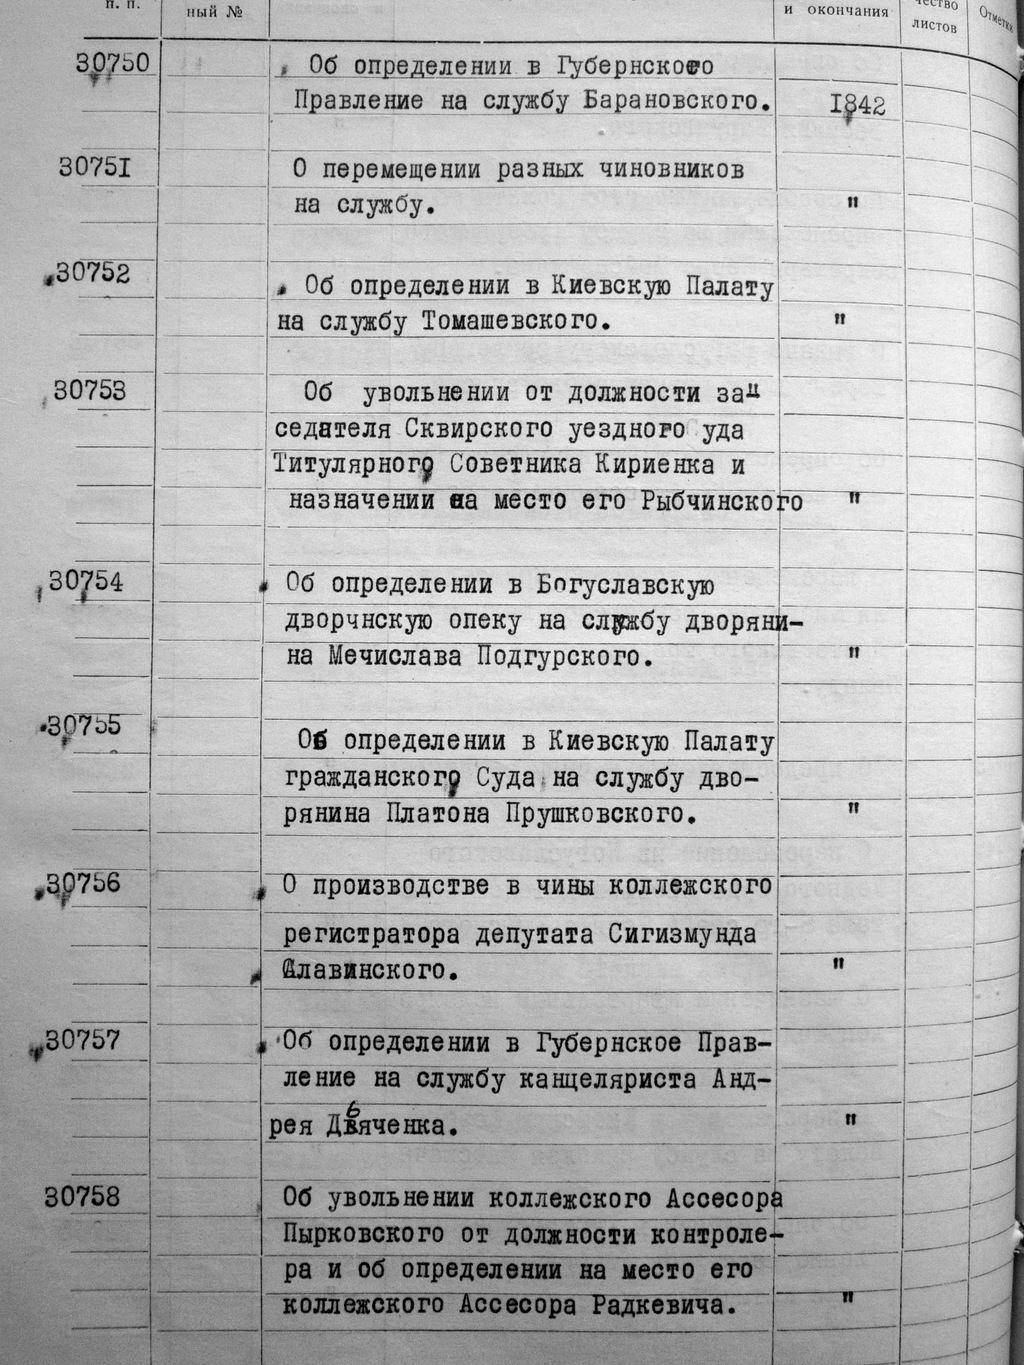 п. п.
ный №
и окончания
чество
листов
Отметки
30750 Об определении в Губернское
Правление на службу Барановского. 1842
30751 О перемещении разных чиновников
на службу. "
30752 Об определении в Киевскую Палату
на службу Томашевского. "
30753 Об увольнении от должности за-
седателя Сквирского уездного уда
Титулярного Советника Кириенка и
назначении на место его Рыбчинского "
30754 Об определении в Богуславскую
дворчнскую опеку на службу дворяни-
на Мечислава Подгурского. "
30755 Об определении в Киевскую Палату
гражданского Суда на службу дво-
рянина Платона Прушковского. "
30756 О производстве в чины коллежского
регистратора депутата Сигизмунда
Славинского. "
30757 Об определении в Губернское Прав-
ление на службу канцеляриста Анд-
рея Дьяченка. "
30758 Об увольнении коллежского Ассесора
Пырковского от должности контроле-
ра и об определении на место его
коллежского Ассесора Радкевича. "